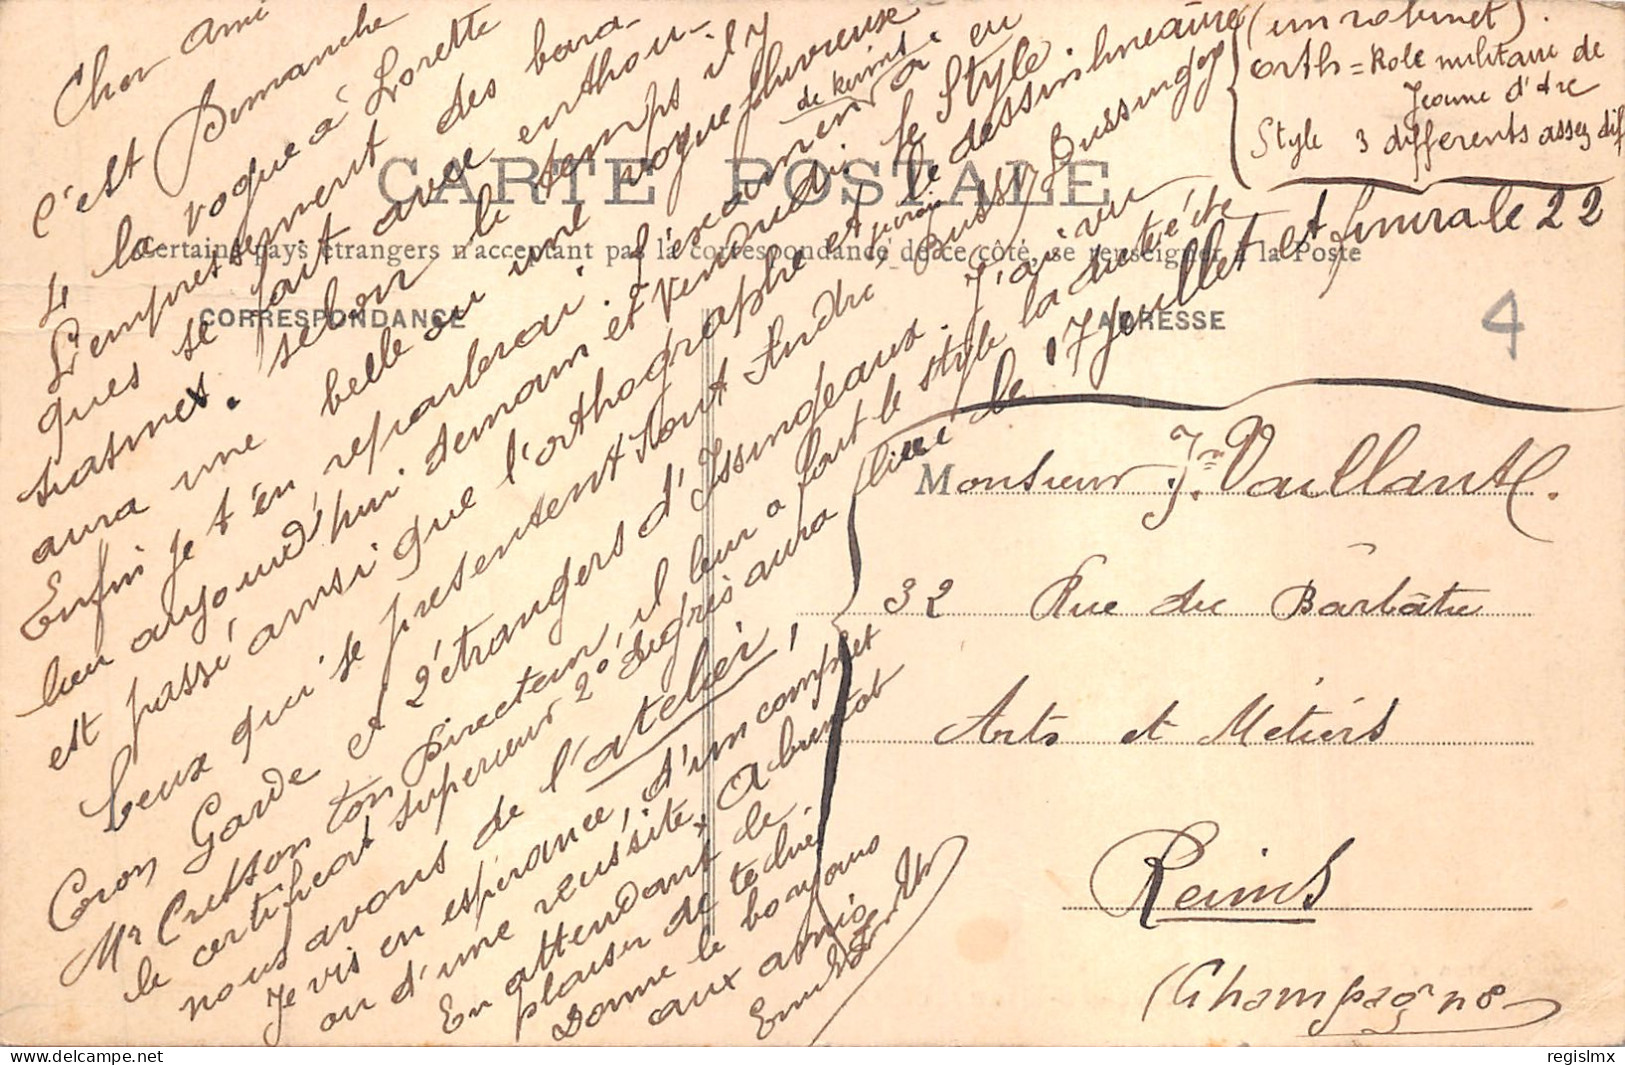 Cher ami
C'est Dimanche
4 la vogue à Lorette
L'empressement des bara-
ques se fait avec enthou-
siasmes. selon le temps il y
aura une belle ou une vogue pluvieuse
Enfin je t'en reparlerai. l'examen a eu
lieu aujourd'hui demain et vendredi. le Style
de Reims.
est passé ainsi que l'orthographe et le dessin linéaire
(un robinet).
orth = Role militaire de
Jeanne d'Arc
Style 3 différents assez dif
Ceux qui se présentent sont André, Bussy, Bussingey
Cron Garde et 2 étrangers d'Issingeaux. J'ai vu
Mr Cresson ton Directeur, il leur a fait le style la dictée été
le certificat superieur 2o degrés aura lieu le 17 Juillet et finira le 22
nous avons de l'atelier,
Je vis en espérance, d'un complet
ou d'une réussite. A bientot
En attendant de
plaisir de te
Donne le bonjour
aux amis
CARTE POSTALE
Certains pays étrangers n'acceptent pas la correspondance de ce côté, se renseigner à la Poste
CORRESPONDANCE
ADRESSE
4
Monsieur J. Vaillant.
32 Rue du Barbâtre
Arts et Métiers
Reims
(Champagne)
regislmx